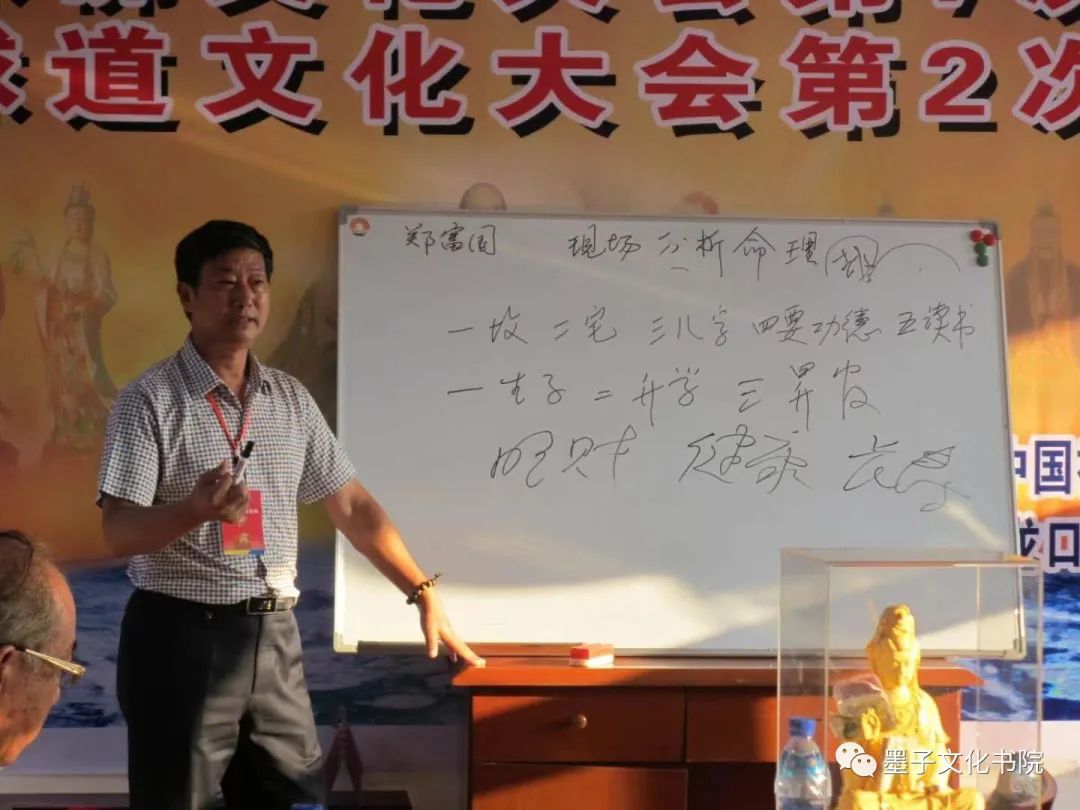 文化大会第
道文化大会第2次
郑富国 现场分析命理
一坟 二宅 三儿字 四要功德 五读书
一生子 二升学 三
旺财 健康 长
中国
龙口
墨子文化书院